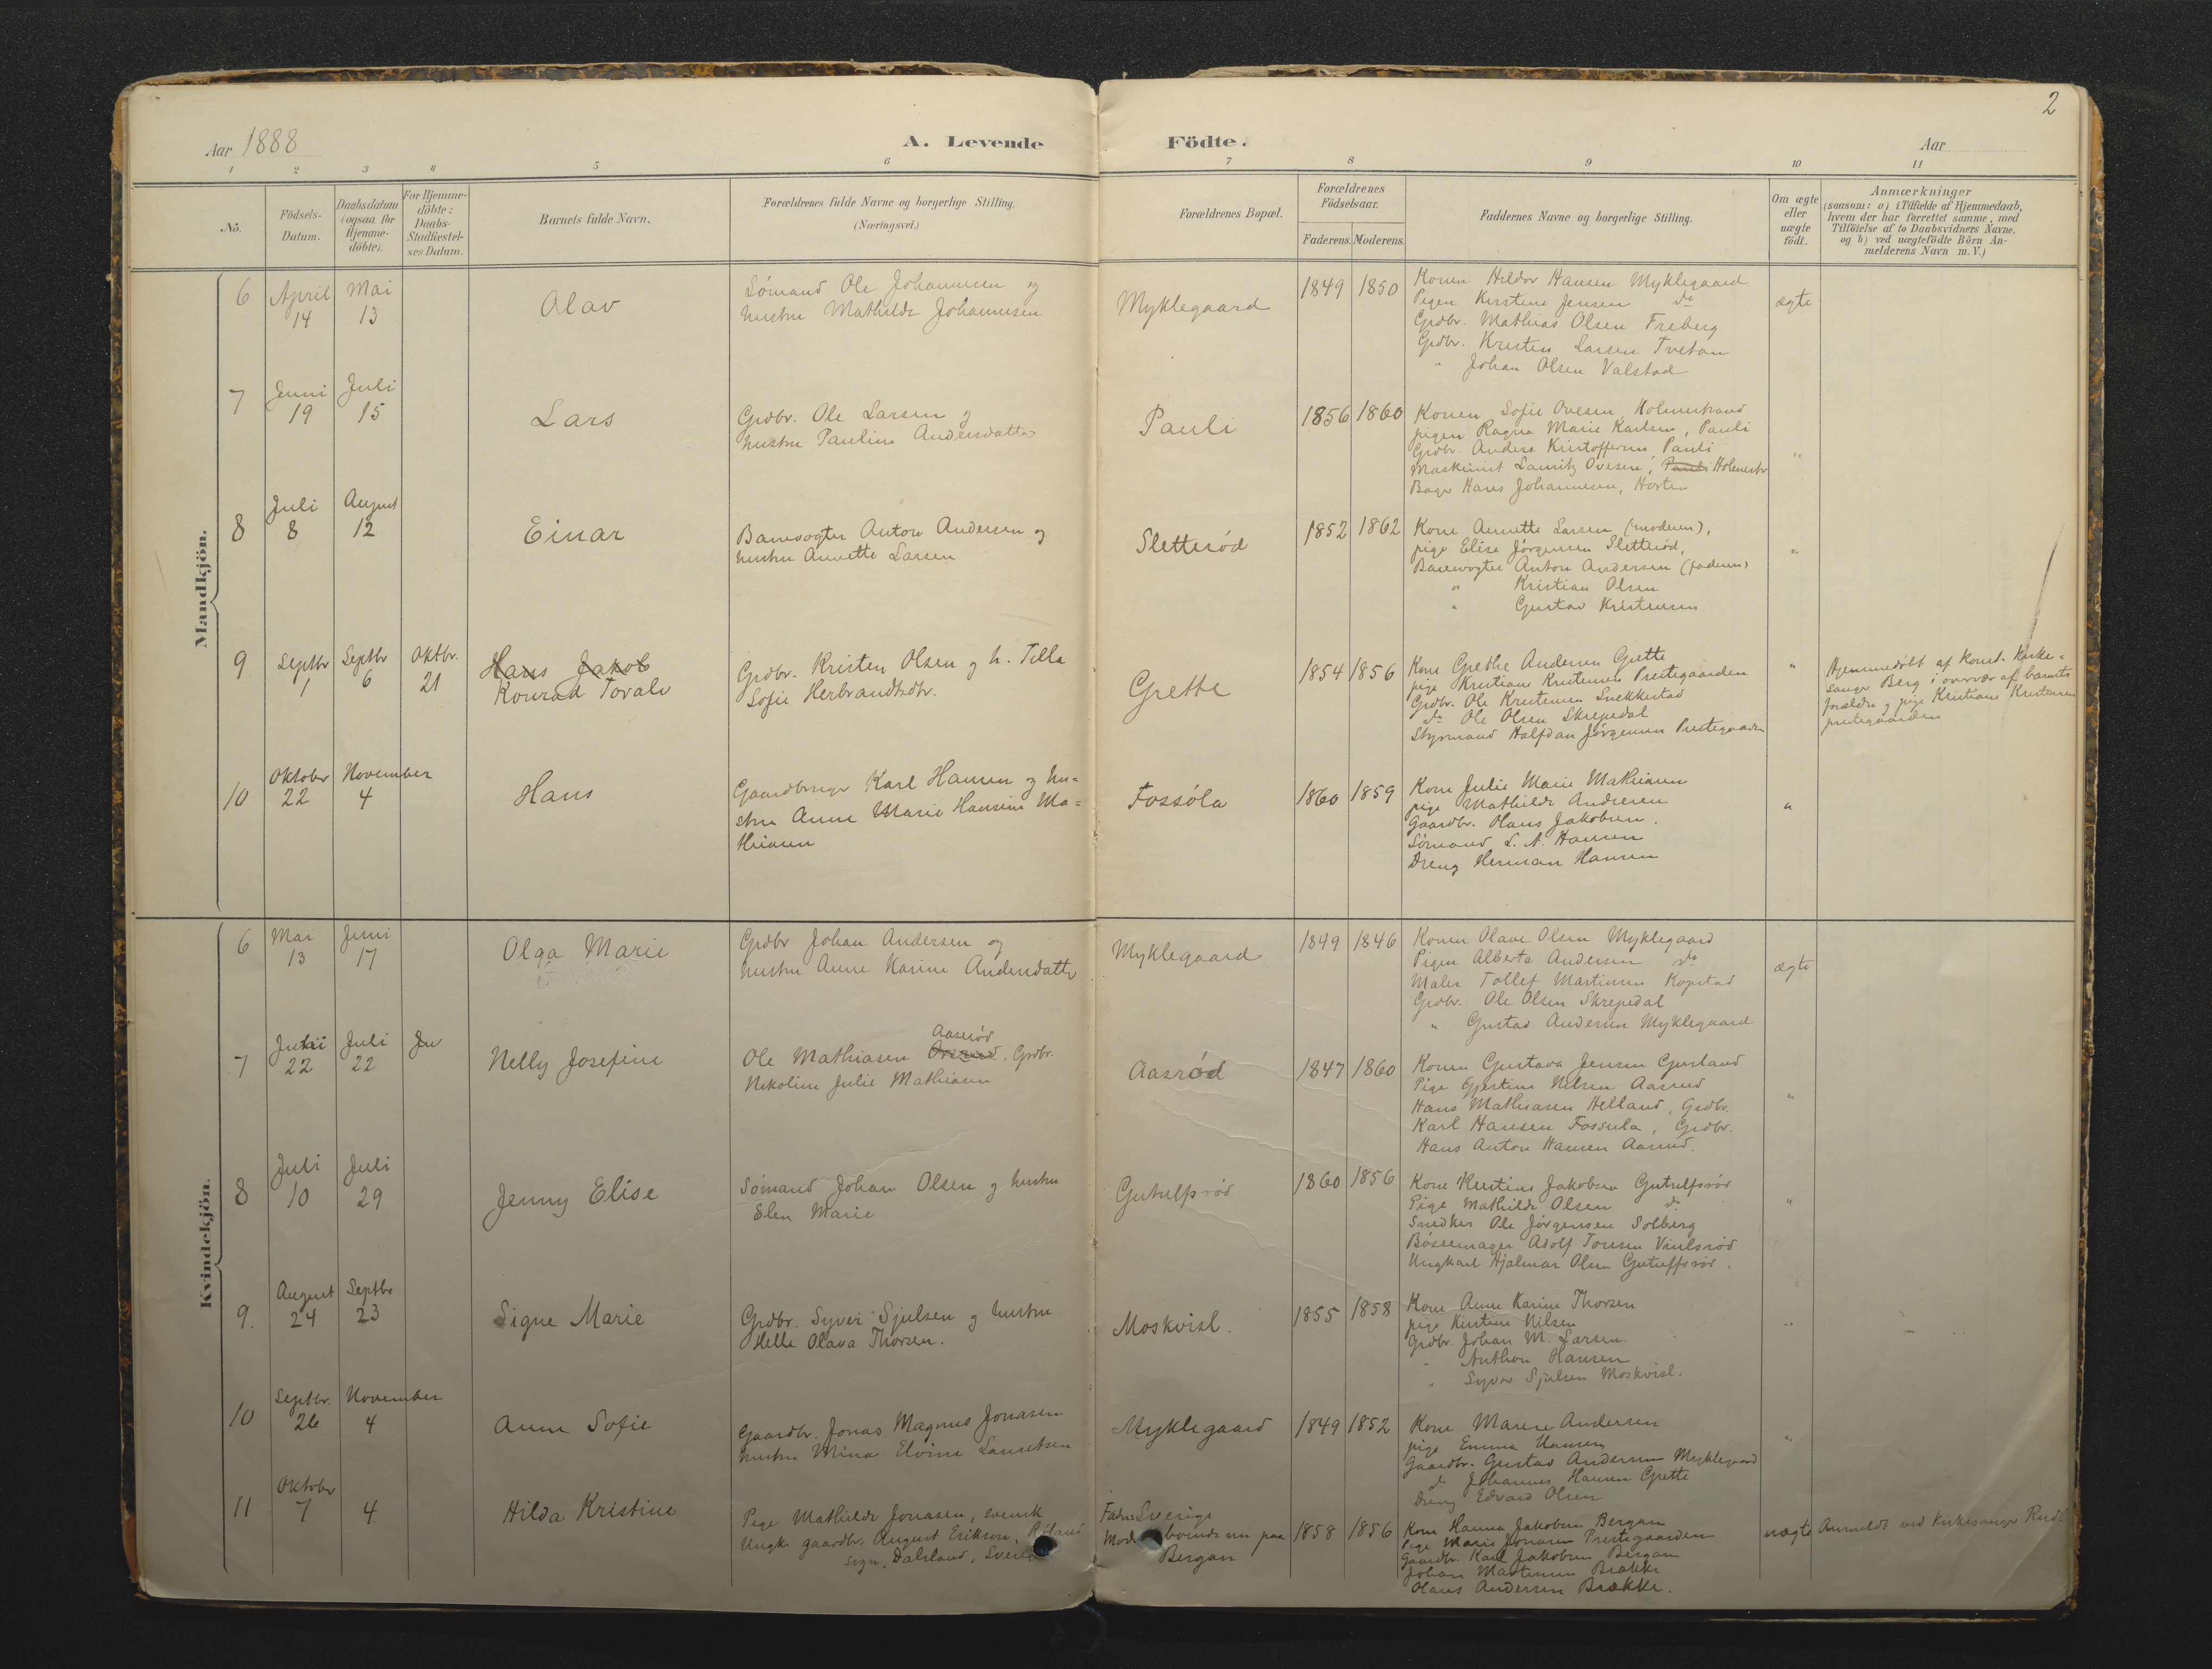 2
Aar 1888
A. Levende Födte.
Aar
1 2 3 4 5 6 7 8 9 10 11
No.
Födsels-
Datum.
Daabsdatum
(ogsaa for
Hjemme-
döbte).
For Hjemme-
döbte:
Daabs-
Stadfæstel-
ses Datum.
Barnets fulde Navn.
Forældrenes fulde Navne og borgerlige Stilling.
(Næringsvei.)
Forældrenes Bopæl.
Forældrenes
Födselsaar.
Faderens. Moderens.
Faddernes Navne og borgerlige Stilling.
Om ægte
eller
uægte
født.
Anmærkninger
(saasom: a) i Tilfælde af Hjemmedaab,
hvem der har forrettet samme, med
Tilföielse af to Daabsvidners Navne.
og b) ved uægtefödte Börn An-
melderens Navn m. V.)
Mandkjön.
6
April
14
Mai
13
Olav
Sómand Ole Johannesen og
hustru Mathilde Johannesen
Myklegaard
1849 1850
Konen Hildor Hansen Myklegaard
Pigen Kirstine Jensen do
Grdbr. Mathias Olsen Freberg
Grdbr. Kristen Larsen Tvetan
" Johan Olsen Valstad
ægte
7
Juni
19
Juli
15
Lars
Grdbr. Ole Larsen og
hustru Pauline Andersdatter
Pauli
1856 1860
Konen Sofie Ovesen, Holmestrand
pigen Ragna Marie Karlsen, Pauli
Grdbr. Anders Kristoffersen, Pauli
Maskinist Lauritz Ovesen, Pauli Holmestr
Bager Hans Johannesen, Horten
"
8
Juli
8
August
12
Einar
Banevogter Anton Andersen og
hustru Annette Larsen
Sletterød
1852 1862
Kone Annette Larsen (moderen),
pige Elise Jörgensen Sletterød,
Banevogter Anton Andersen (faderen)
" Kristian Olsen
" Gustav Kristensen
"
9
Septbr
1
Septbr
6
Oktbr.
21
Hans Jakob
Konrad Toralv
Grdbr. Kristen Olsen og h. Tilla
Sofie Herbrandtsdtr.
Grette
1854 1856
Kone Grethe Andersen Grette
pige Kristiane Kristensen Prestegaarden
Grdbr. Ole Kristensen Snekkestad
do Ole Olsen Skrepedal
Styrmand Halfdan Jørgensen Prestegaarden
"
Hjemmedøbt af Konst. Kirke-
sanger Berg i overvær af barnets
forældre og pige Kristiane Kristensen
prestegaarden
10
Oktober
22
November
4
Hans
Gaardbruger Karl Hansen og hu-
stru Anne Marie Hansine Ma-
thiasen
Fossóla
1860 1859
Kone Julie Marie Mathiasen
pige Mathilde Andresen
Gaardbr. Hans Jakobsen.
Sómand L. A. Hansen
Dreng Herman Hansen
"
Kvindekjön.
6
Mai
13
Juni
17
Olga Marie
Grdbr Johan Andersen og
hustru Anne Karine Andersdatter
Myklegaard
1849 1846
Konen Olave Olsen Myklegaard
Pigen Alberta Andersen do
Maler Tollef Martinsen Kopstad
Grdbr. Ole Olsen Skrepedal
" Gustav Andersen Myklegaard
ægte
7
Juni
22
Juli
22
Ju
Nelly Josefine
Aasrød
Ole Mathiasen, Grdbr.
Nikoline Julie Mathiasen
Aasrød
1847 1860
Konen Gustava Jensen Gjerland
Pige Gjertine Nilsen Aasrud
Hans Mathiasen Helland, Grdbr.
Karl Hansen Fossula, Grdbr.
Hans Anton Hansen Aasrud.
"
8
Juli
10
Juli
29
Jenny Elise
Sømand Johan Olsen og hustru
Elen Marie
Gutulfsrød
1860 1856
Kone Kirstine Jakobsen Gutulfsrød
Pige Mathilde Olsen do
Snedker Ole Jörgensen Solberg
Bössemager Adolf Tonsen Vinlsrød
Ungkarl Hjalmar Olsen Gutulfsrød.
"
9.
August
24
Septbr
23
Signe Marie
Grdbr. Syver Sjulsen og hustru
Helle Olava Thorsen.
Moskvisl.
1855 1858
Kone Anne Karine Thorsen
pige Kirstine Nilsen
Grdbr. Johan M. Larsen
" Anthon Hansen
" Syver Sjulsen Moskvisl.
"
10
Septbr.
26
November
4
Anne Sofie
Gaardbr. Jonas Magnus Jonasen
hustru Mina Elvine Lauritsen
Myklegaard
1849 1852
Kone Maren Andersen
pige Emma Hansen
Gaardbr. Gustav Andersen Myklegaard
do Johannes Hansen Grette
Dreng Edvard Olsen
"
11
Oktober
7
4
Hilda Kristine
Pige Mathilde Jonasen, svensk
Ungk. gaardbr. August Erikson,
sogn, Dalsland,
Fader: Sverige
boende nu paa
Bergan
1858 1856
Kone Hanna Jakobsen Bergan
Pige Marie Jonasen Prestegaarden
Gaardbr. Karl Jakobsen Bergan
Johan Martinsen Brække
Hans Andersen Brække.
uægte
Anmeldt ved Kirkesanger Rud.